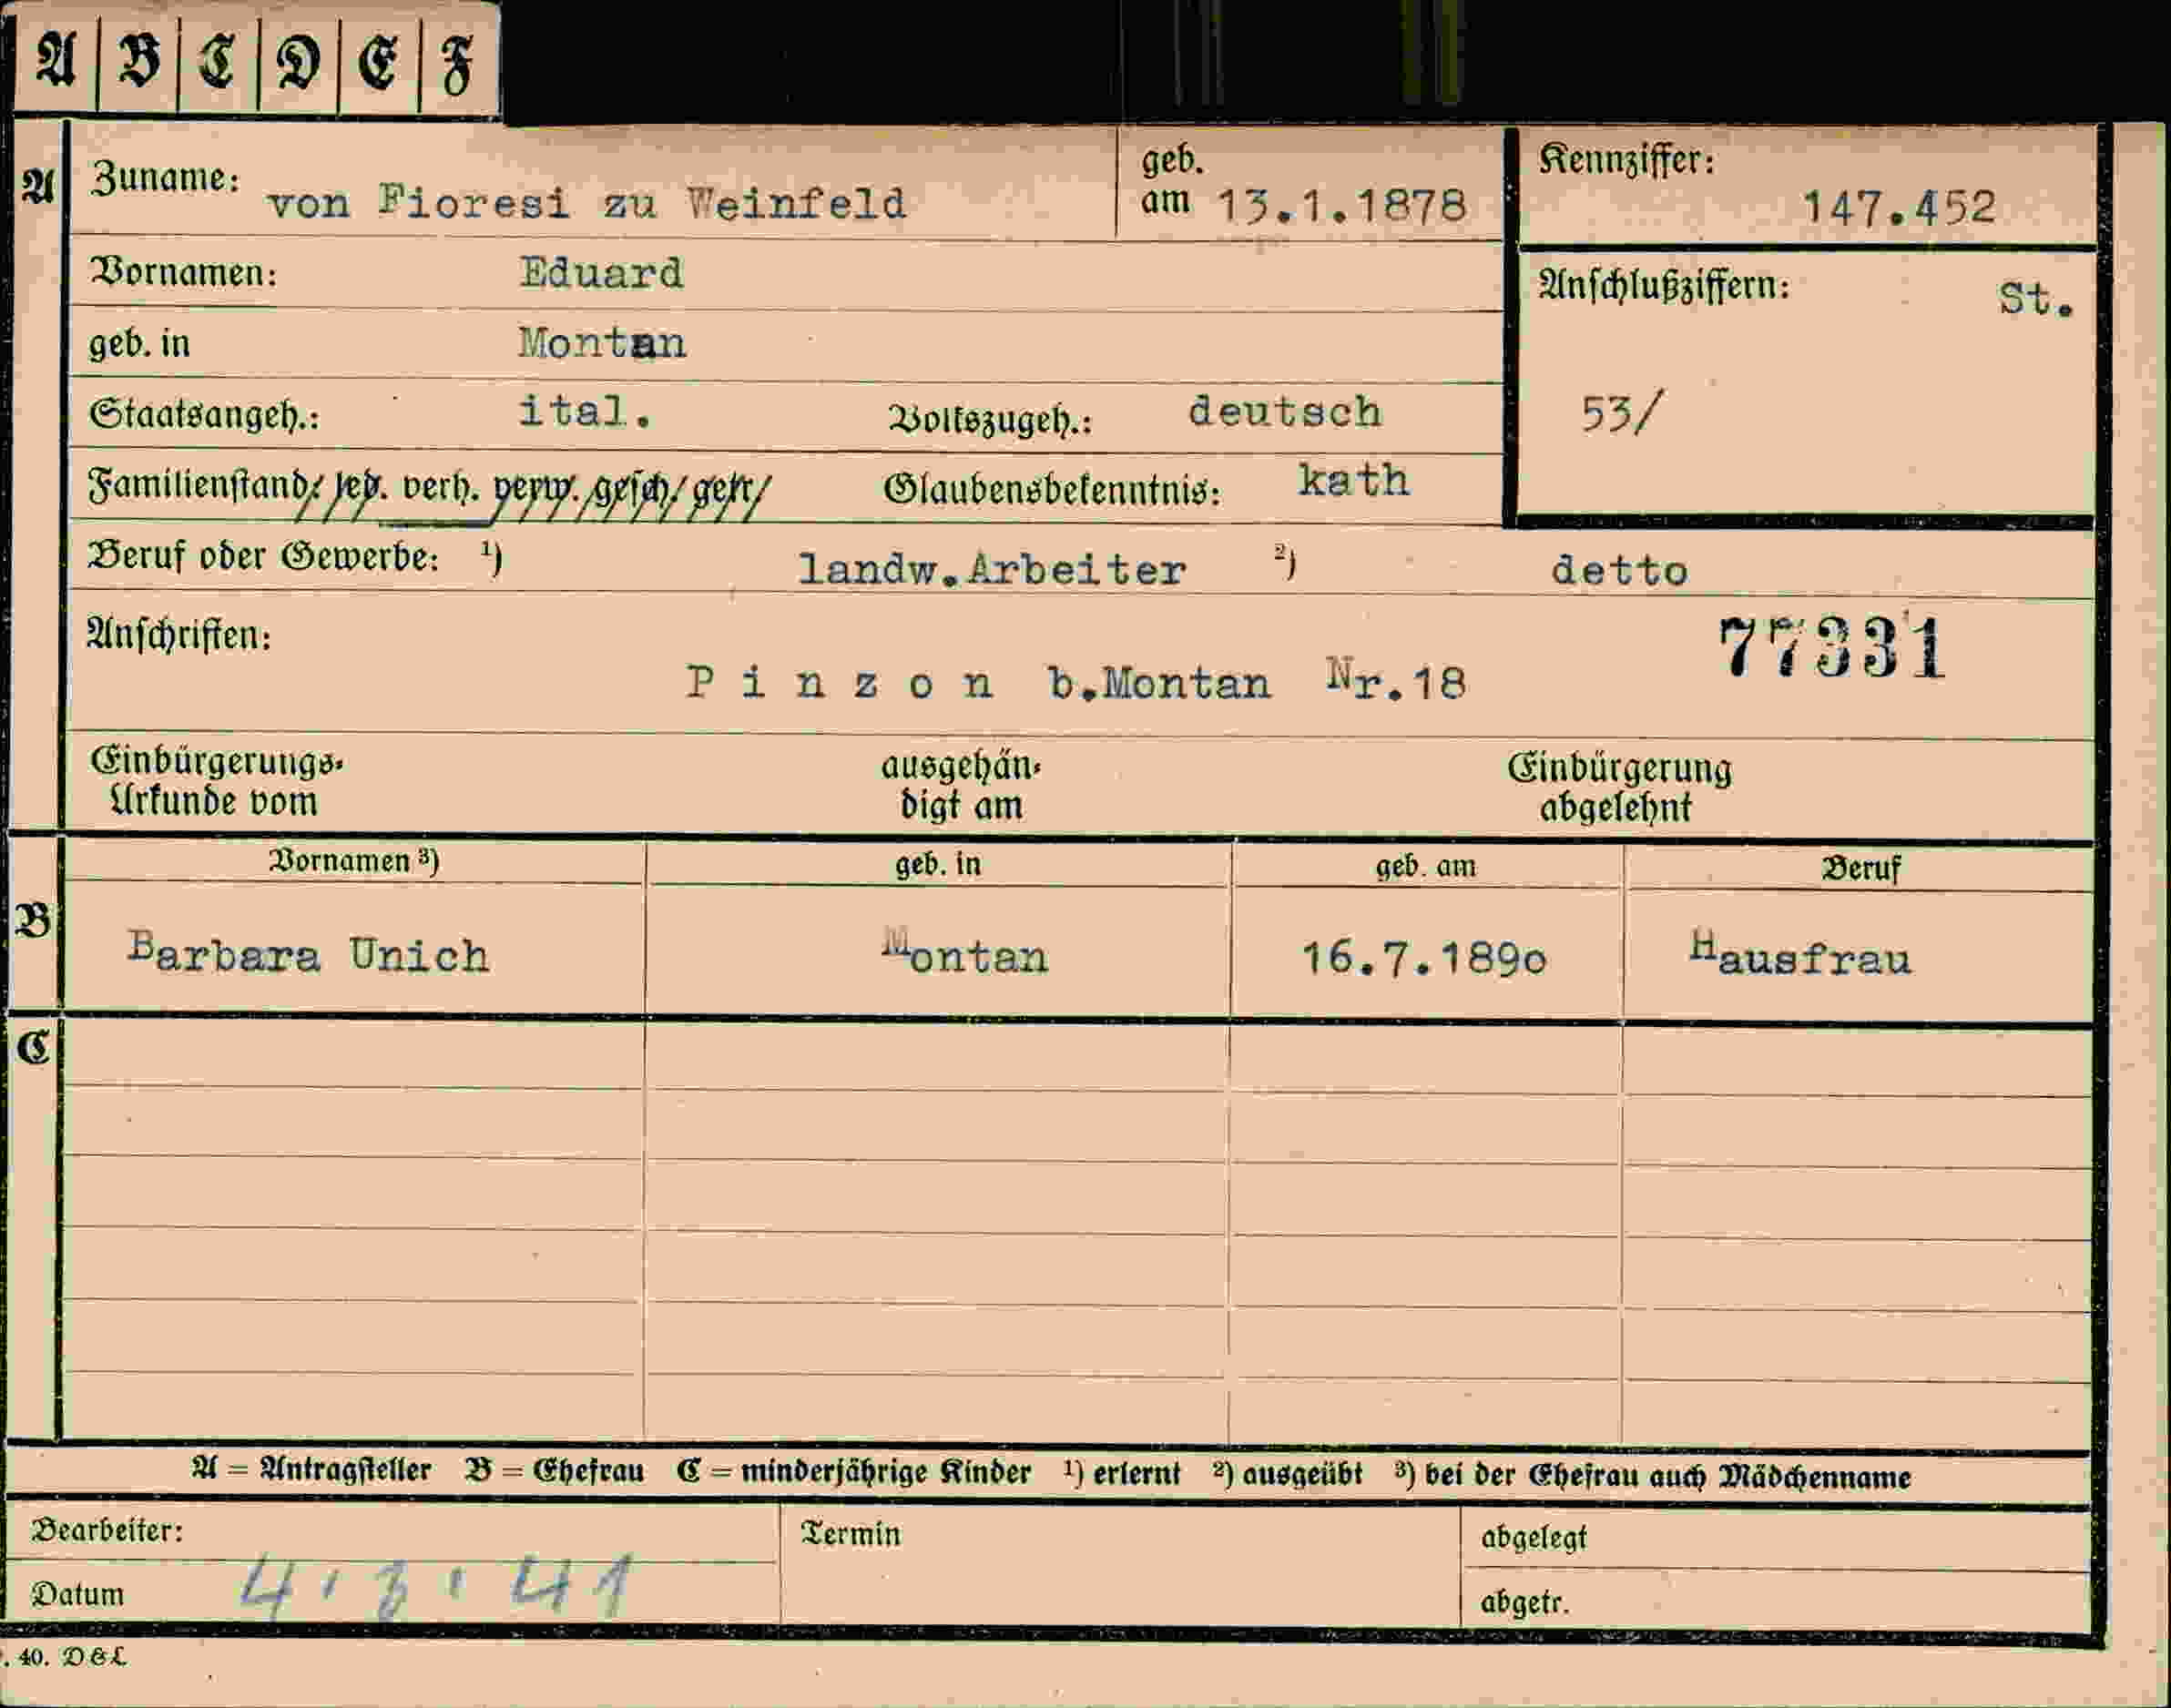 A B C D E F
A Zuname: von Fioresi zu Weinfeld geb. am 13.1.1878 Kennziffer: 147.452
Vornamen: Eduard Anschlußziffern: St.
geb. in Montan
Staatsangeh.: ital. Volkszugeh.: deutsch 53/
Familienstand: led. verh. verw. gesch. getr. Glaubensbekenntnis: kath
Beruf oder Gewerbe: 1) landw.Arbeiter 2) detto
Anschriften: 77331
P i n z o n b.Montan Nr.18
Einbürgerungs- ausgehän- Einbürgerung
Urkunde vom digt am abgelehnt
Vornamen 3) geb. in geb. am Beruf
B Barbara Unich Montan 16.7.189o Hausfrau
C
A = Antragsteller B = Ehefrau C = minderjährige Kinder 1) erlernt 2) ausgeübt 3) bei der Ehefrau auch Mädchenname
Bearbeiter: Termin abgelegt
Datum 4.3.41 abgetr.
. 40. D&L